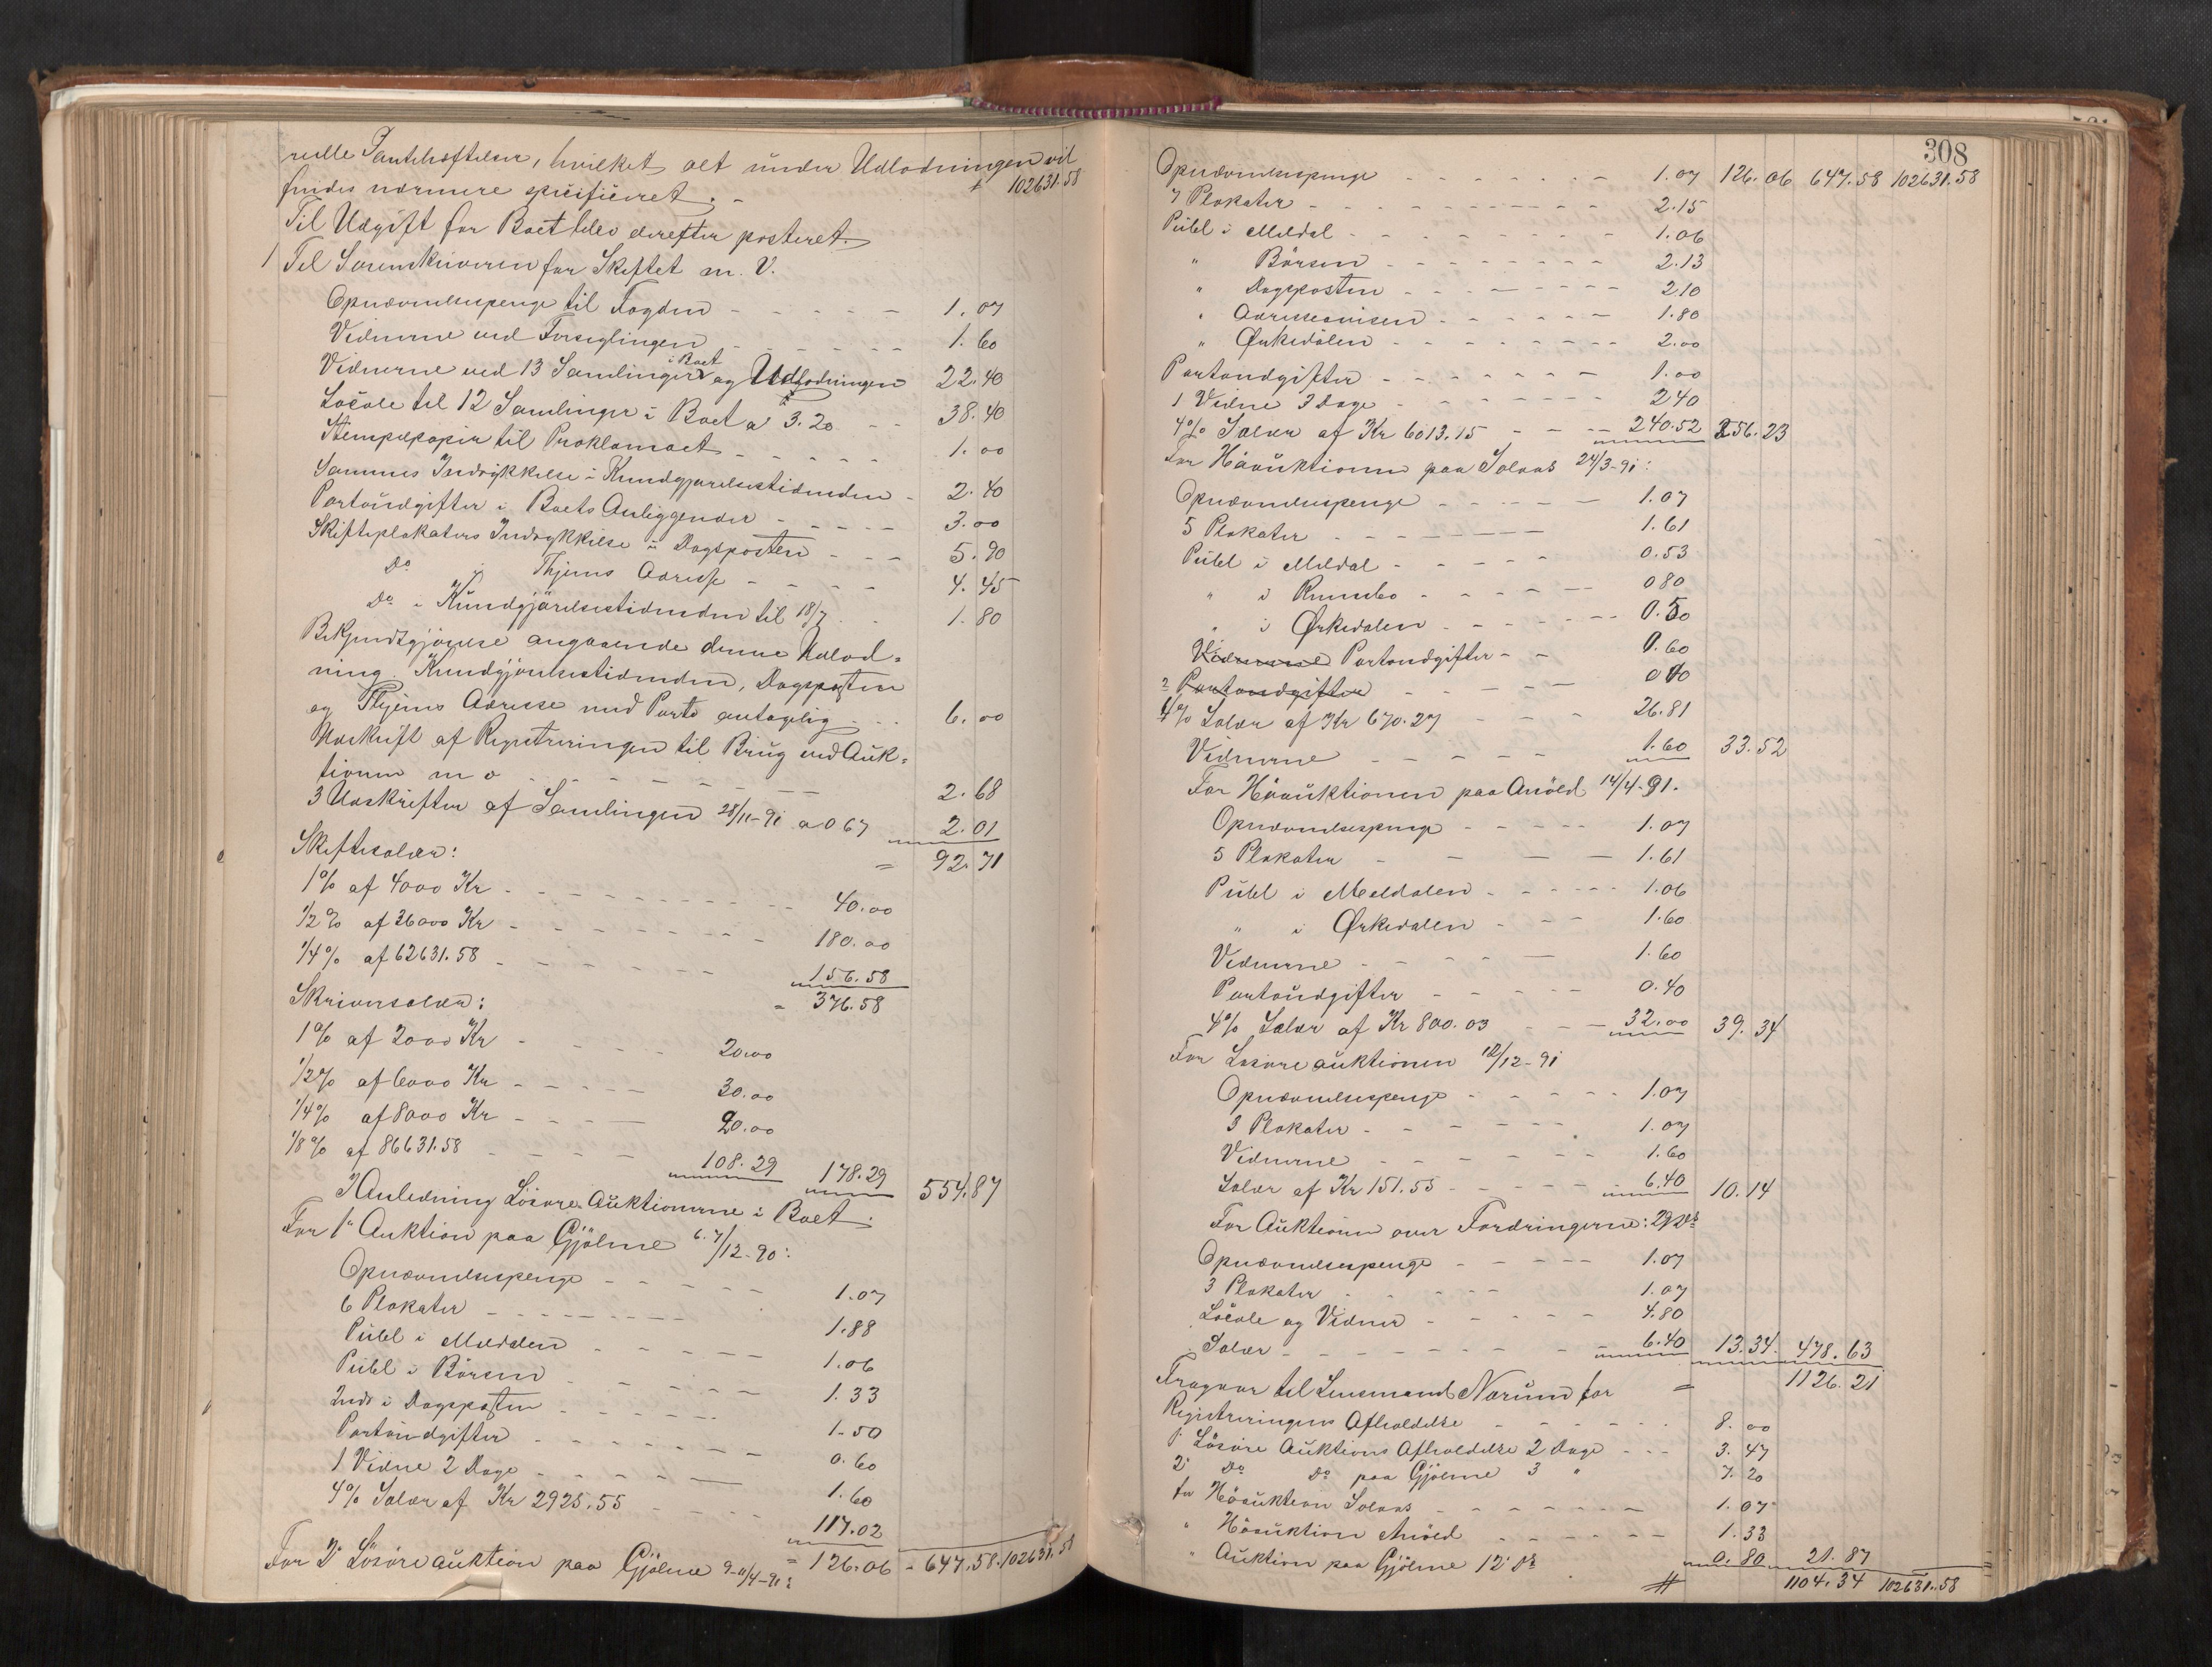 relle Pantehæftelser, hvilket alt under Udlodningen vil
findes nærmere specificeret. - 102631.58
Til Udgift for Boet blev derefter posteret.
1 Til Sorenskriveren for Skiftet m. V.
Opnævnelsespenge til Fogden - - - - - 1.07
Vidnerne ved Forseglingen - - - - - 1.60
Vidnerne ved 13 Samlinger i Boet og Udlodningen 22.40
Locale til 12 Samlinger i Boet a 3.20 - - 38.40
Stempelpapir til Proklamaet - - - - - 1.00
Sammes Indrykkelse i Kundgjørelsestidenden - 2.40
Portoudgifter i Boets Anliggender - - - - - 3.00
Skifteplakaters Indrykkelse i Dagsposten - - - 5.90
Do i Thjems Adresse - - - - 4.45
Do i Kundgjørelsestidenden til 18/7 - - 1.80
Bekjendtgjørelse angaaende denne Udlod=
ning. Kundgjørelsestidenden, Dagsposten
og Thjems Adresse med Porto antagelig - - - 6.00
Udskrift af Registreringen til Brug ved Auk=
tionen m v - - - - - - 2.68
3 Udskrifter af Samlingen 28/11-91 a 0 67 2.01
= 92.71
Skiftesalær:
1% af 4000 Kr - - - - - - - - - 40.00
1/2% af 36000 Kr - - - - - - - - 180.00
1/4% af 62631.58 - - - - - - 156.58
= 376.58
Skriversalær:
1% af 2000 Kr - - - - - 20.00
1/2% af 6000 Kr - - - - - 30.00
1/4% af 8000 Kr - - - - 20.00
1/8% af 86631.58 - - - - 108.29 178.29 554.87
I Anledning Løsøre Auktionerne i Boet:
For 1ste Auktion paa Gjölme 6. 7/12-90:
Opnævnelsespenge - - - - - 1.07
6 Plakater - - - - - - - 1.88
Publ i Meldalen - - - - - 1.06
Publ i Börsen - - - - - - 1.33
Indr i Dagsposten - - - - - 1.50
Portoudgifter - - - - - - - 0.60
1 Vidne 2 Dage - - - - - - 1.60
4% Salær af Kr 2925.55 - - - - 117.02
For 2 Løsøreauktion paa Gjölme 9-11/4-91: = 126.06 - 647.58. 102631.58
308
Opnævnelsespenge - - - - - - - 1.07 126.06 647.58 102631.58
7 Plakater - - - - - - - - - - 2.15
Publ i Meldal - - - - - - - - 1.06
" Börsen - - - - - - - - 2.13
" Dagsposten - - - - - - - - 2.10
" Adresseavisen - - - - - - 1.80
" Ørkedalen - - - - - - - - 2.00
Portoudgifter - - - - - - - - 1.00
1 Vidne 3 Dage - - - - - - - 2 40
4% Salær af Kr 6013.15 - - - - 240.52 256.23
For Höauktionen paa Solaas 24/3-91:
Opnævnelsespenge - - - - - 1.07
5 Plakater - - - - - - - 1.61
Publ i Meldal - - - - - 0.53
" i Rennebo - - - - - 0 80
" i Ørkedalen - - - - - - 0.50
Vidnerne Portoudgifter - - 0.60
Portoudgifter - - - - -
4% Salær af Kr 670.27 - - - 26.81
Vidnerne - - - - - 1.60 33.52
For Höauktionen paa Auöld 14/4-91.
Opnævnelsespenge - - - - - 1.07
5 Plakater - - - - 1.61
Publ i Meldalen - - - - - 1.06
" i Ørkedalen - - - 1.60
Vidnerne - - - - - 1.60
Portoudgifter - - - - - 0.40
4% Salær af Kr 800.03 - - - 32.00 39.34
For Løsøreauktionen 12/12-91
Opnævnelsespenge - - - - - 1.07
3 Plakater - - - - - - - 1.07
Vidnerne - - - - - - - 1.60
Salær af Kr 151.55 - - - - - - 6.40 10.14
For Auktionen over Fordringerne:
Opnævnelsespenge - - - - - 1.07
3 Plakater - - - - - 1.07
Locale og Vidner - - - - - 4.80
Salær - - - - - - - - - 6.40 13.34. 478.63
= 1126.21
Fragaar til Lensmand Norum for
Registreringens Afholdelse - - - - - - 8.00
1 Løsøre Auktions Afholdelse 2 Dage - - - 3.47
2 Do Do paa Gjölme 3 " 7.20
for Höauktion Solaas - - - - - - - 1.07
" Höauktion Auöld - - - - - - 1.33
" Auktion paa Gjölme 12 Ds 0.80 21.87
1104.34 102631.58